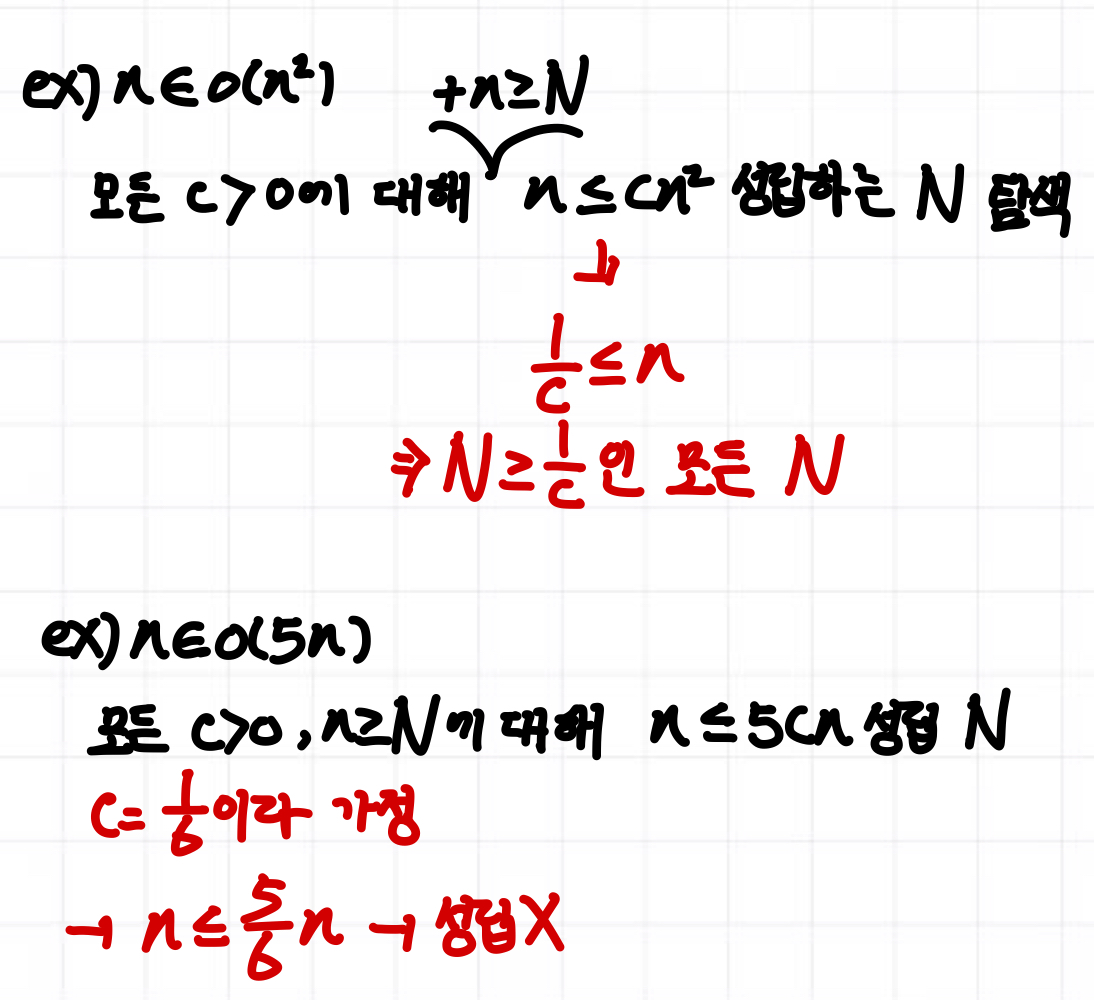 ex) n∈o(n²) +n≥N
모든 c>0에 대해 n≤cn² 성립하는 N 탐색
↓
1/c ≤ n
⇒ N ≥ 1/c 인 모든 N
ex) n∈o(5n)
모든 c>0, n≥N에 대해 n≤5cn 성립 N
c= 1/6이라 가정
→ n ≤ 5/6 n → 성립X